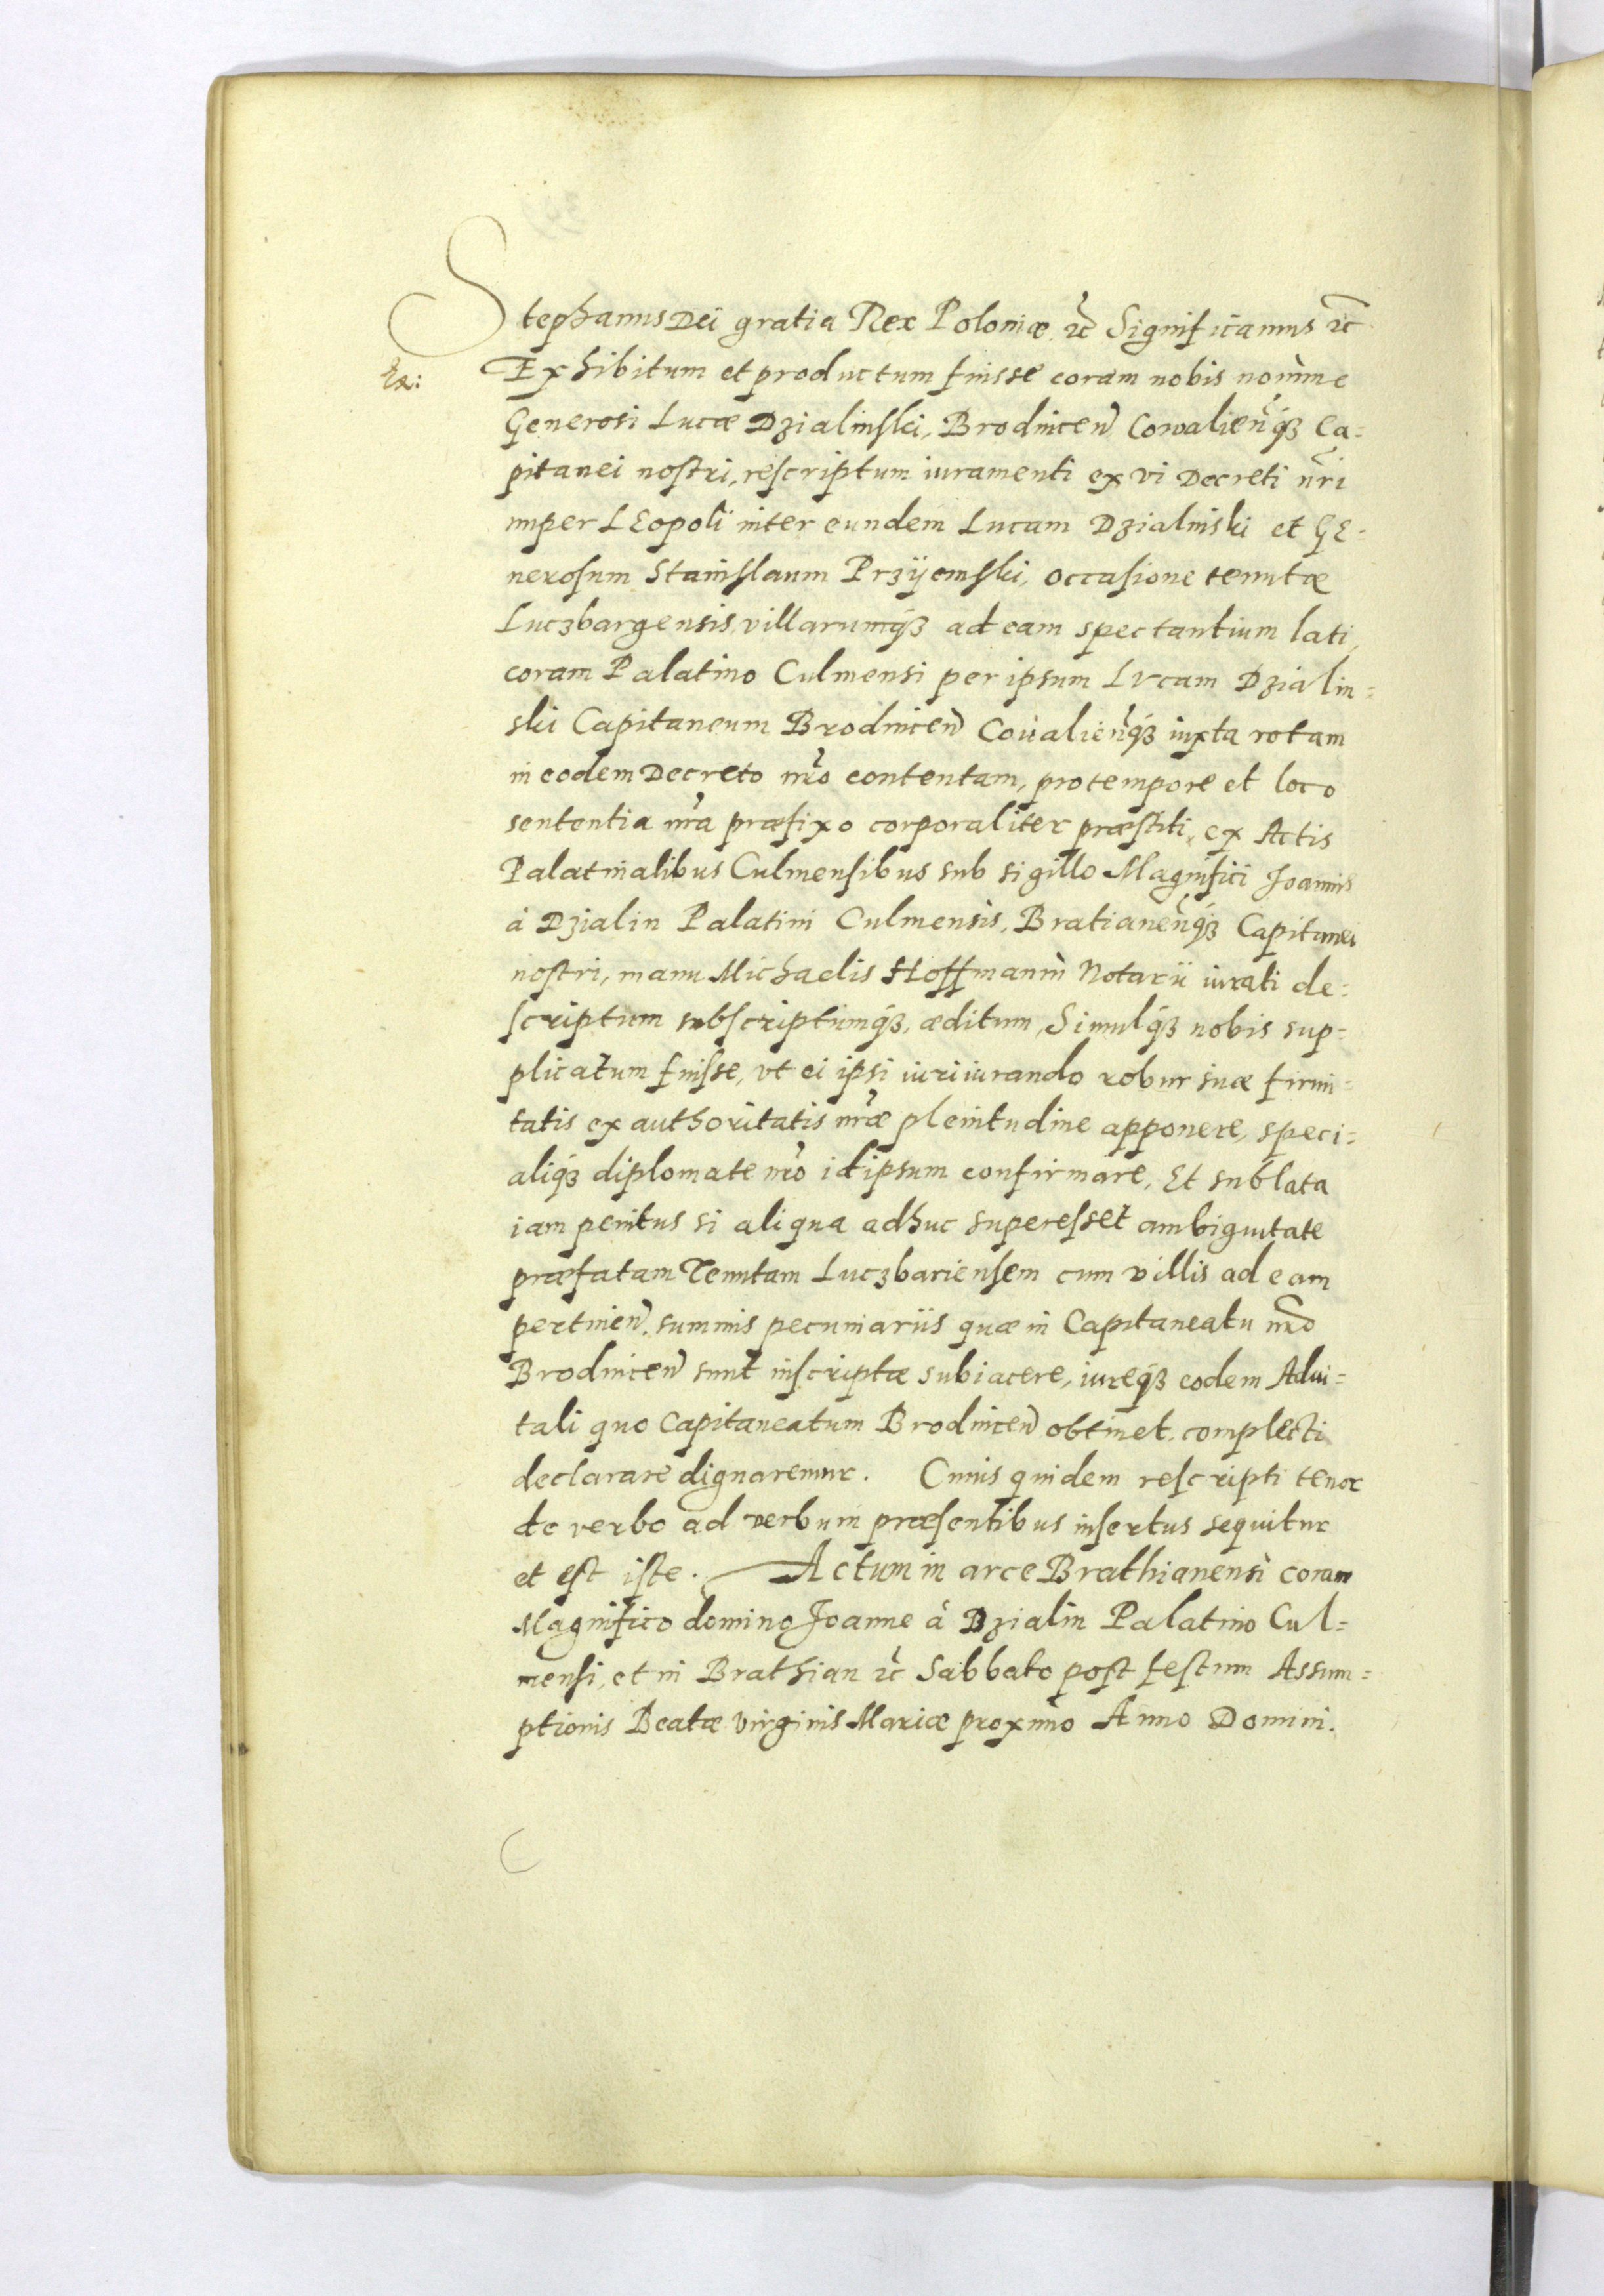 Stephanus Dei gratia Rex Poloniæ, ꝛc̃ Significamus ꝛc̃
Ex: Exhibitum et productum fuisse coram nobis nomine
Generosi Lucæ Dzialinſki, Brodnicen̄ Cowalien̄q́ꝫ Ca=
pitanei noſtri, reſcriptum iuramenti ex vi Decreti nr̃i
nuper LEopoli inter eundem Lucam Dzialinski et GE=
neroſum Staniſlaum Przÿemſki, occaſione tenutæ
Luczbargensis, villarumq́ꝫ ad eam spectantium lati,
coram Palatino Culmensi per ipsum Lvcam Dzialin=
ski Capitaneum Brodnicen̄ Coualien̄q́ꝫ iuxta rotam
in eodem Decreto nr̃o contentam, pro tempore et loco
sententia nr̃a præfixo corporaliter præſtiti, ex Actis
Palatinalibus Culmenſibus sub sigillo Magnifici Joannis
à Dzialin Palatini Culmensis, Bratianen̄q́ꝫ Capitanei
noſtri, manu Michaelis Hoffmanni Notarii iurati de=
ſcriptum subſcriptumq́ꝫ, æditum, Simulq́ꝫ nobis sup=
plicatum fuiſse, vt ei ipsi iuriiurando robur suæ firmi=
tatis ex authoritatis nr̃æ plenitudine apponere, speci=
aliq́ꝫ diplomate nr̃o id ipsum confirmare, Et sublata
iam penitus si aliqua adhuc supereſset ambiguitate
præfatam Tenutam Luczbarienſem cum villis ad eam
pertinen̄. summis pecuniariis quæ in Capitaneatu nr̃o
Brodnicen̄ sunt inſcriptæ subiacere, iureq́ꝫ eodem Advi=
tali quo Capitaneatum Brodnicen̄ obtinet, complecti
declarare dignaremur. Cuius quidem reſcripti tenor
de verbo ad verbum præſentibus inſertus sequitur
et eſt iſte. Actum in arce Brathianensi coram
Magnifico domino Joanne à Dzialin Palatino Cul=
menſi, et in Brathian ꝛc̃ Sabbato poſt feſtum Assum=
ptionis Beatæ Virginis Mariæ proximo Anno Domini.